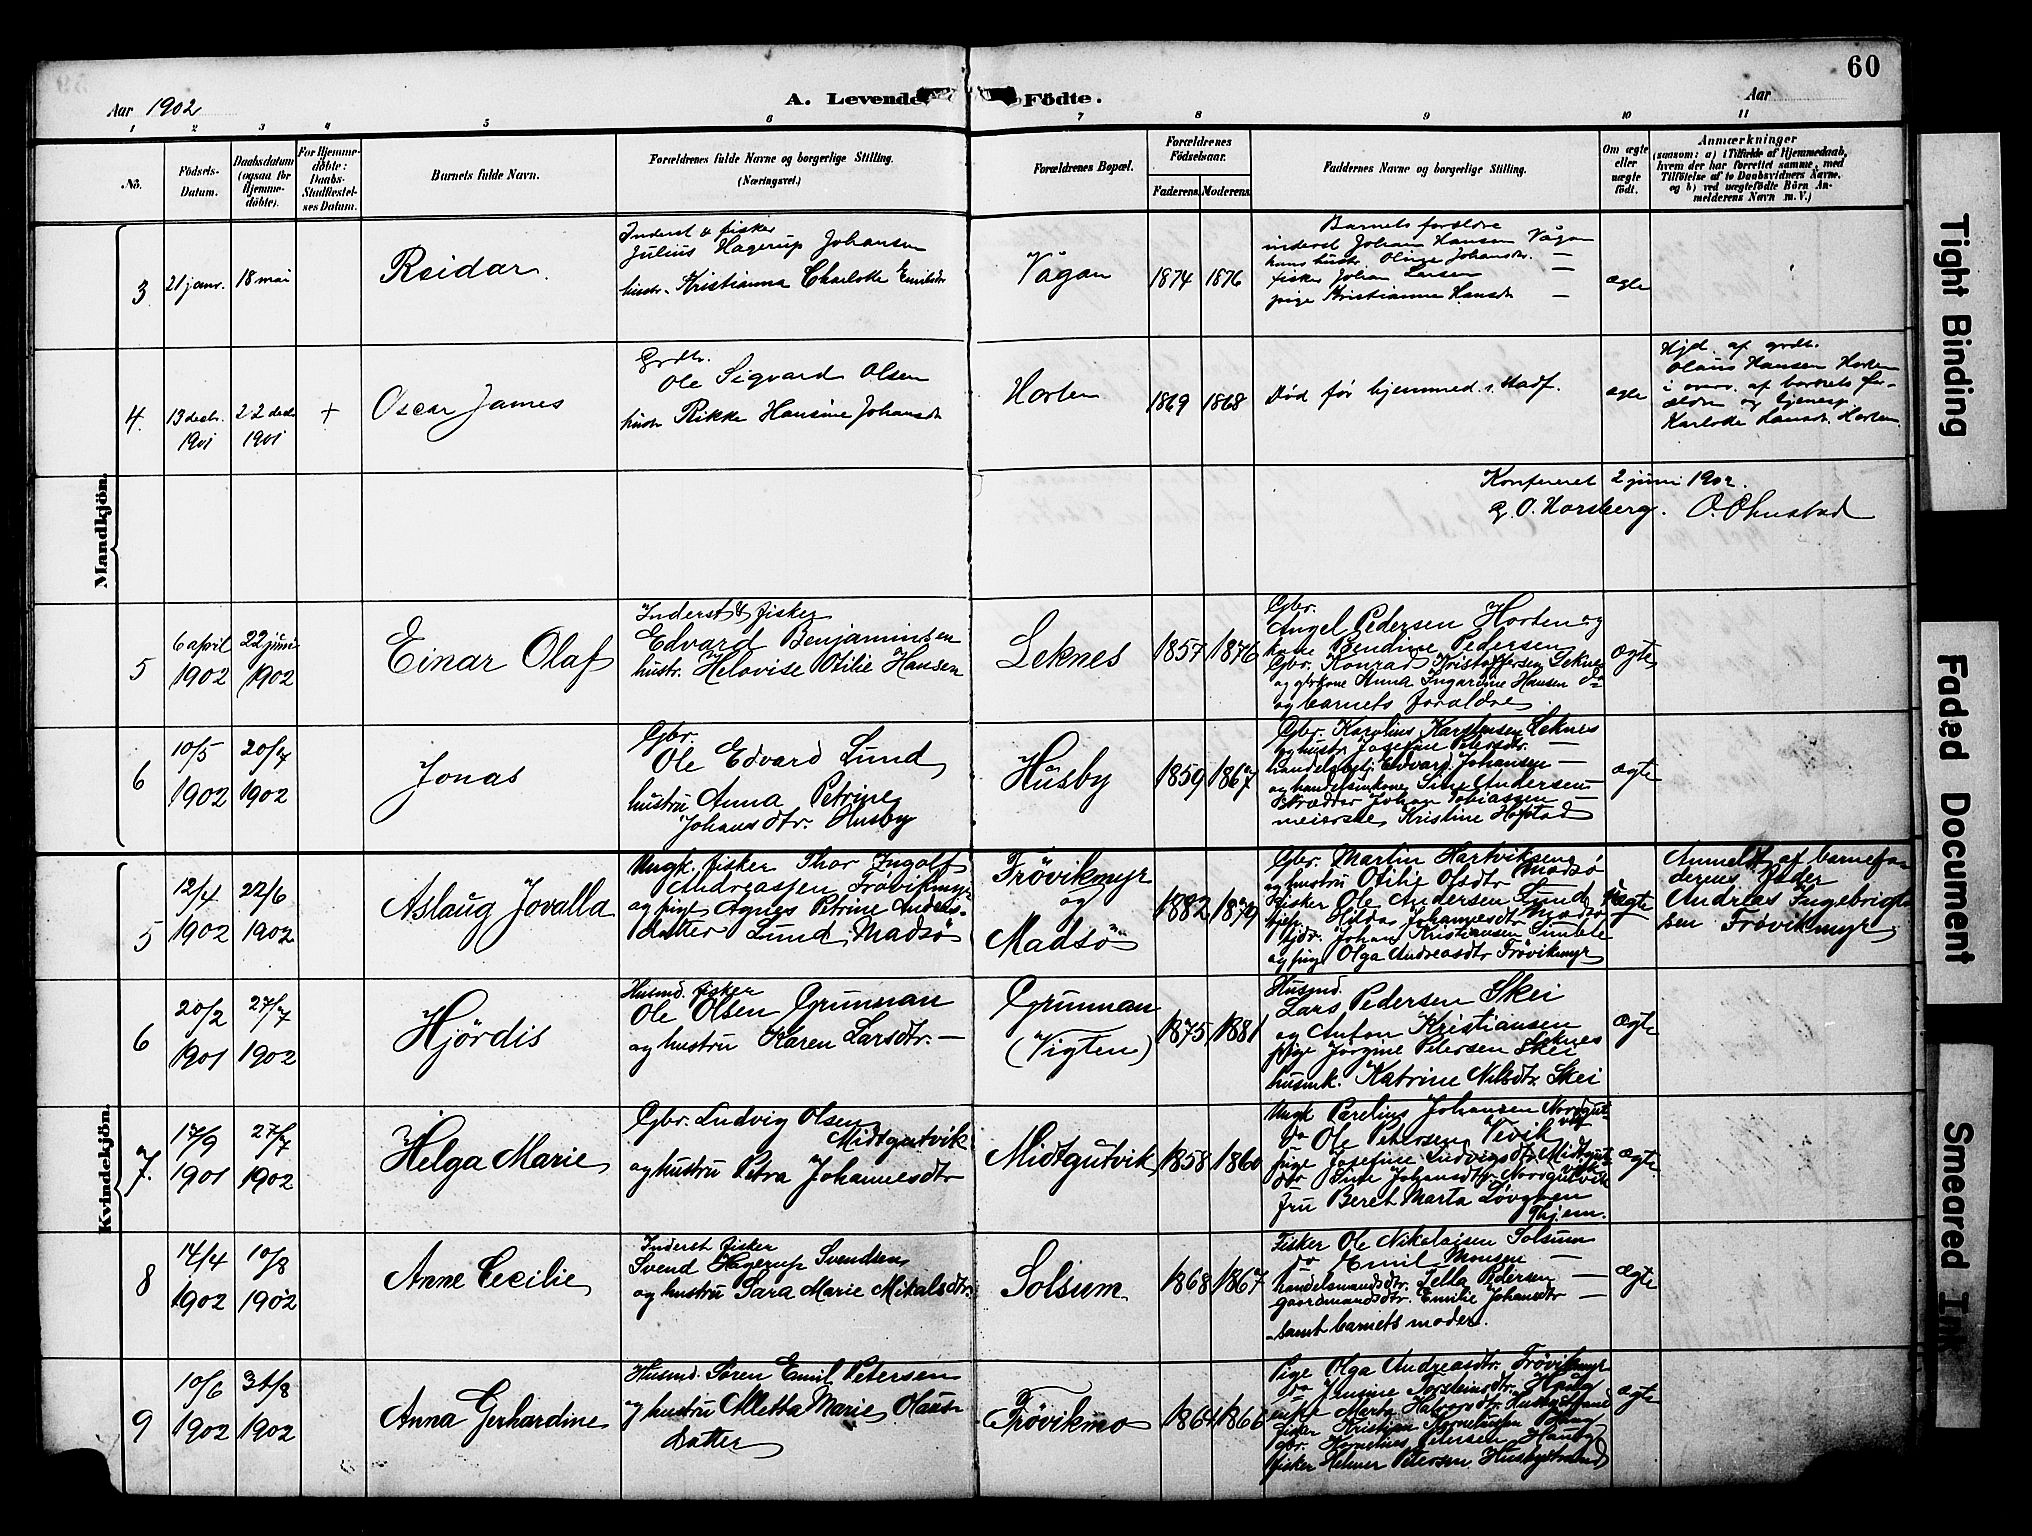 60
Aar 1902
A. Levende Födte.
Aar
1 2 3 4 5 6 7 8 9 10 11
No.
Födsels-
Datum.
Daabsdatum
(ogsaa for
Hjemme-
döbte).
For Hjemme-
döbte:
Daabs-
Stadfæstel-
ses Datum.
Barnets fulde Navn.
Forældrenes fulde Navne og borgerlige Stilling.
(Næringsvei.)
Forældrenes Bopæl.
Forældrenes
Födselsaar.
Faderens. Moderens.
Faddernes Navne og borgerlige Stilling.
Om ægte
eller
uægte
födt.
Anmærkninger
(saasom: a) i Tilfælde af Hjemmedaab,
hvem der har forrettet samme, med
Tilföielse af to Daabsvidners Navne,
og b) ved uægtefödte Börn An-
melderens Navn m. V.)
Mandkjön.
3
21 janr.
18 mai
Reidar
Inderst & fisker
Julius Hagerup Johansen
hustr. Kristianna Charlotte
Vågan
1874
1876
Barnets forældre
inderst Johan Hansen Vågan
hans hustr. Oline Johansdr. —
fisker Johan Larsen —
pige Kristianne Hansdr —
ægte
4.
13 decbr.
1901
22 decbr
1901
+
Oscar James
Grdbr.
Ole Sigvard Olsen
hustr Rikke Hansine Johansdr
Horten
1869
1868
Död før hjemmed. s stadf.
ægte
Hjd. af grdbr.
Olaus Hansen Horten
i overv. af barnets for-
ældre og tjenesp.
Karlotte Hansdr. Horten
Konfereret 2 juni 1902.
O. Horsberg. O. Ohnstad
5
6 april
1902
22 juni
1902
Einar Olaf
Inderst & fisker
Edvard Benjaminsen
hustr. Helovise Otilie Hansen
Leknes
1857
1876
Gbr.
Angel Pedersen Horten og
kone Bendine Pedersen
Gbr. Konrad Kristoffersen Leknes
og gbrkone Anna Ingardine Hansen do
og barnets forældre
ægte
6
10/5
1902
20/7
1902
Jonas
Gbr.
Ole Edvard Lund
hustru Anna Petrine
Johansdtr. Husby
Husby
1859
1867
Gbr. Karolius Karstensen Leknes
og hustr Josefine Petersdtr. —
handelsbetj Edvard Johansen —
og handelsmkone Sine Andersen —
Skrædder Johan Tobiassen —
meierske Kristine Hofstad
ægte
Kvindekjön.
5
12/4
1902
22/6
1902
Aslaug Jovalla
Ungk. fisker Thor Ingolf
Andreassen Frövikmyr
og pige Agnes Petrine Anders-
datter Lund, Madsö
Frövikmyr
og
Madsö
1882
1879
Gbr. Martin Hartviksen
og hustru Otilie Olsdtr Madsö
Fisker Ole Andersen Lund
Hilda Johannesdtr Madsö
Johan Kristiansen
og pige Olga Andreasdtr Frövikmyr
uægte
Anmeldt af barnefa-
derens fader
Andreas Ingebrigt-
sen Frövikmyr
6
20/2
1901
27/7
1902
Hjördis
Husmd. fisker
Ole Olsen Grunnan
og hustru Karen Larsdtr. —
Grunnan
(Vigten)
1875
1881
Husmd.
Lars Pedersen Skei
og Anton Kristiansen
Leknes
pige Jörgine Petersen Skei
husmk. Katrine Nilsdtr Skei
ægte
7.
17/9
1901
27/7
1902
Helga Marie
Gbr. Ludvig Olsen
Midtgutvik
og hustru Petra Johannesdtr
Midtgutvik
1858
1860
Ungk Parelius Johansen Nordgut-
vik
do Ole Petersen Tevik
pige Josefine Ludvigsdtr Midtgut-
vik
do Sine Johansdtr Nordgutvik
fru Beret Marta Lövgren
Thjem.
ægte
8
14/4
1902
10/8
1902
Anne Cecilie
Inderst fisker
Svend Hagerup Svendsen
og hustru Sara Marie Mikalsdtr.
Solsum
1868
1867
Fisker Ole Nikolaisen Solsum
do Emil Monsen —
handelsmandsdtr. Jella Pedersen —
gaardmandsdtr. Emilie Johansdtr —
samt barnets moder.
ægte
9
10/6
1902
31/8
1902
Anna Gerhardine
Husmd. Sören Emil Petersen
og hustru Alletta Marie Olaus-
datter
Frövikmo
1864
1866
Pige Olga Andreasdtr. Frövikmyr
do Jensine Torsteinsdtr. Haug
enke Merta Halvorsdtr Husbystrand
fisker Kristian Kornelius
gbr. Kornelius Petersen Haug
fisker Helmer Petersen Husbystrand
ægte
Tight Binding
Faded Document
Smeared Ink